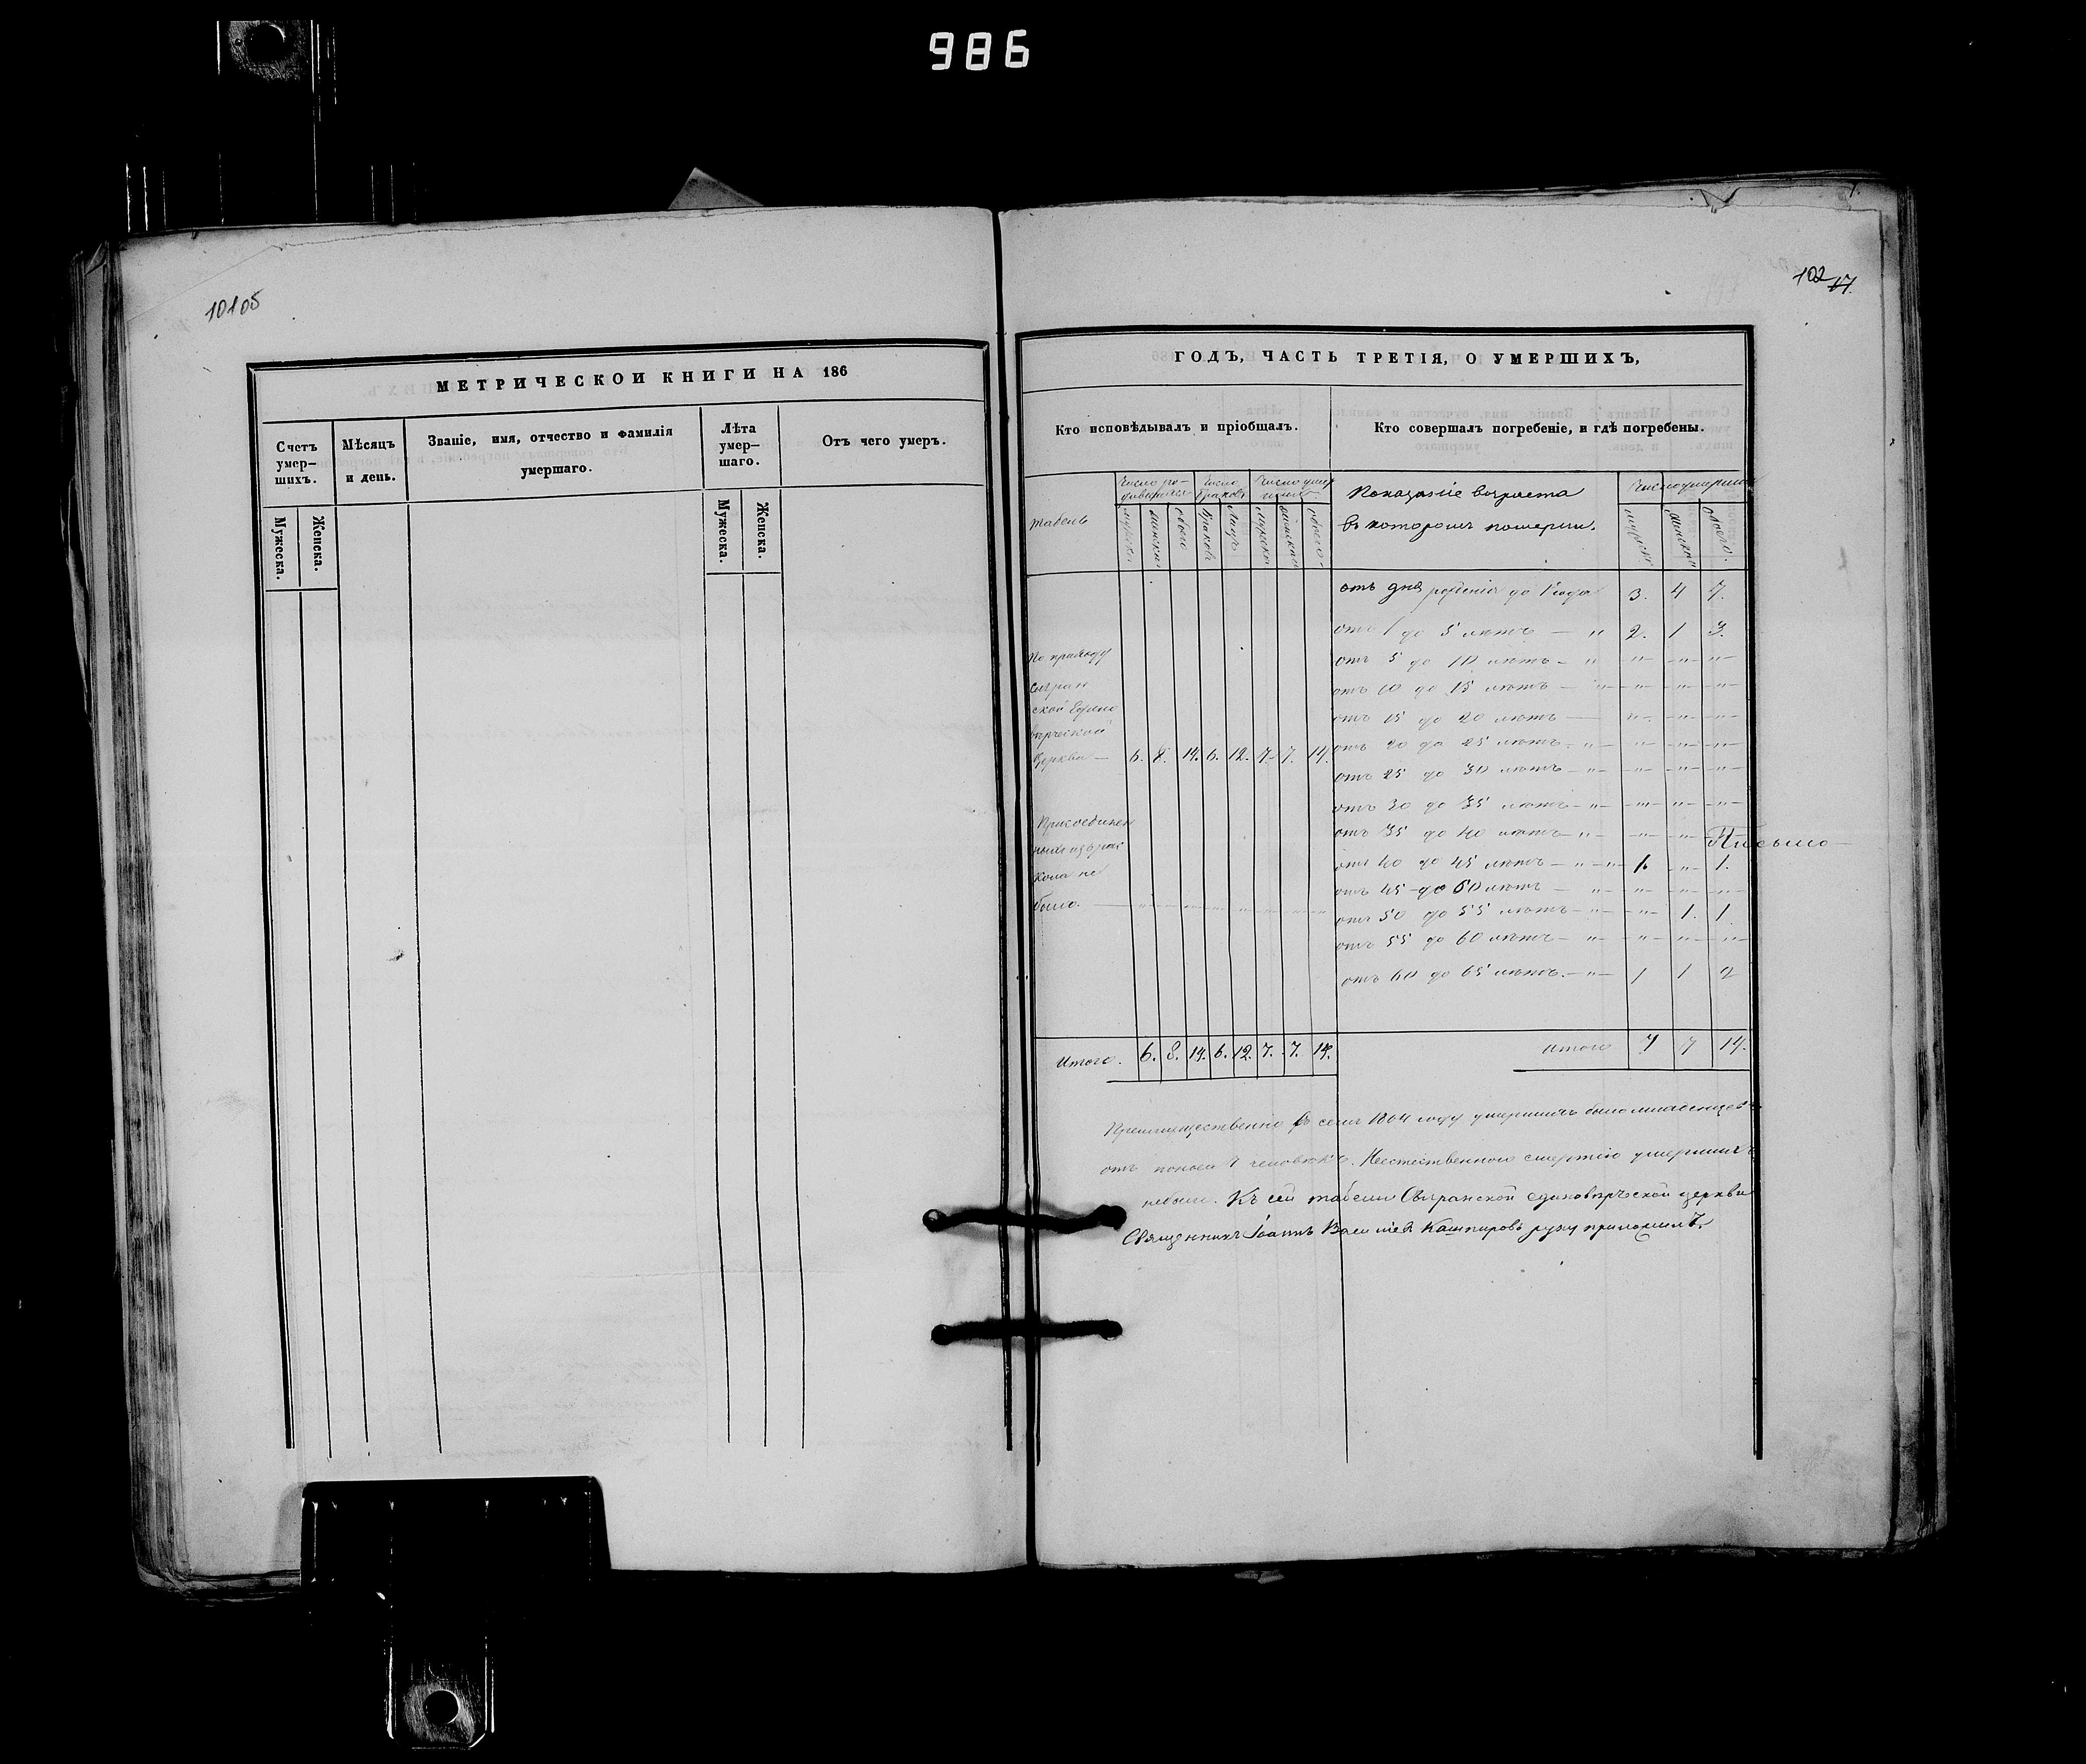 986
10105
МЕТРИЧЕСКОИ КНИГИ НА 186
Счетъ умер-
шихъ.
Мѣсяцъ
и день.
Званіе, имя, отчество и фамилія
умершаго.
Лѣта
умер-
шаго.
Отъ чего умеръ.
Мужеска.
Женска.
Мужеска.
Женска.
102 17.
ГОДЪ, ЧАСТЬ ТРЕТІЯ, О УМЕРШИХЪ,
Кто исповѣдывалъ и пріобщалъ.
Кто совершалъ погребеніе, и гдѣ погребены.
Табель
Число ро-
Число
браковъ
Число умер
женска
обоего
Браковъ
Лицъ
женска
обоего
Показаніе возраста
въ которомъ померли.
Число умершихъ
женска
обоего
отъ дня рожденія до 1 года 3. 4 7.
отъ 1 до 5 лѣтъ — „ 2. 1 3.
отъ 5 до 10 лѣтъ — „ — „ — „ — „ —
отъ 10 до 15 лѣтъ — „ — „ — „ — „ —
отъ 15 до 20 лѣтъ — „ — „ — „ —
отъ 20 до 25 лѣтъ — „ — „ — „ — „ —
отъ 25 до 30 лѣтъ — „ — „ — „ — „ —
отъ 30 до 35 лѣтъ — „ — „ — „ — „ —
отъ 35 до 40 лѣтъ — „ — „ — „ —
отъ 40 до 45 лѣтъ — „ — „ 1. „ 1.
отъ 45 до 50 лѣтъ — „ — „ — „ — „ —
отъ 50 до 55 лѣтъ — „ — „ — 1. 1.
отъ 55 до 60 лѣтъ — „ — „ — „ — „ —
отъ 60 до 65 лѣтъ. — „ — 1 1 2
По приходу
Сызран
ской Едино
вѣрческой
Церкви — 6. 8. 14. 6. 12. 7. 7. 14.
Присоединен
ныхъ изъ рас
кола не
было.
Итого. 6. 8. 14. 6. 12. 7. 7. 14.
Итого 7 7 14.
Преимущественно въ семъ 1864 году умершихъ было младенцевъ
отъ поноса 7 человѣкъ. Неестественною смертію умершихъ
небыло. Къ сей табели Сызранской единовѣрческой церкви
Священникъ Іоаннъ Васильевъ Кашпировъ руку приложилъ.